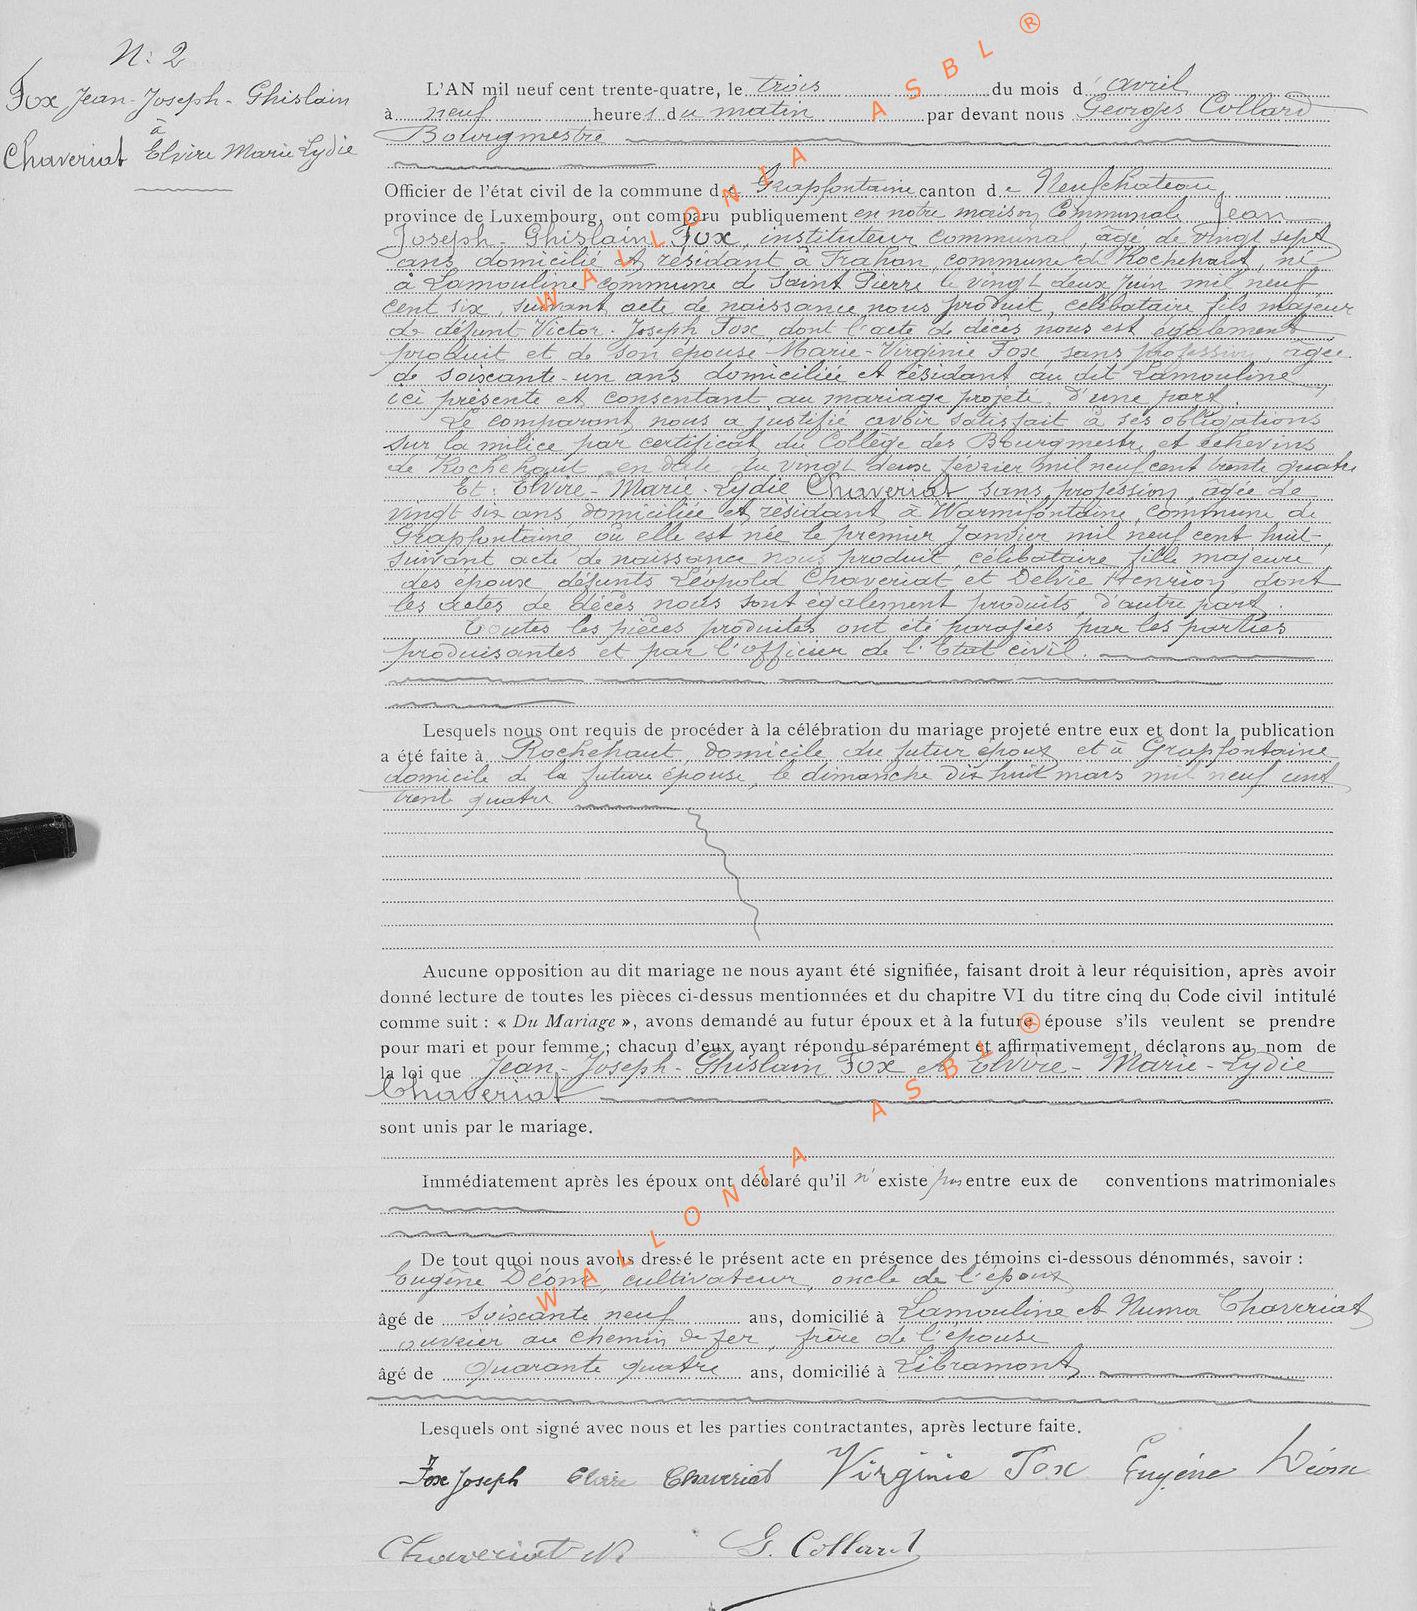 N: 2
Fox Jean-Joseph-Ghislain
à
Chaveriat Elvire Marie Lydie
L'AN mil neuf cent trente-quatre, le trois du mois d' avril
à neuf heures du matin par devant nous Georges Collard
Bourgmestre
Officier de l'état civil de la commune de Grapfontaine canton de Neufchateau
province de Luxembourg, ont comparu publiquement en notre maison Communale Jean
Joseph-Ghislain Fox, instituteur communal, âgé de vingt sept
ans, domicilié et résidant à Frahan, commune de Rochehaut, né
à Lamouline commune de Saint Pierre le vingt deux Juin mil neuf
cent six, suivant acte de naissance nous produit, célibataire fils majeur
de défunt Victor-Joseph Fox, dont l'acte de décès nous est également
produit et de son épouse Marie-Virginie Fox, sans profession, âgée
de soixante-un ans domiciliée et résidant au dit Lamouline
ici présente et consentant au mariage projeté, d'une part.
Le comparant nous a justifié avoir satisfait à ses obligations
sur la milice par certificat du Collège des Bourgmestre et échevins
de Rochehaut en date du vingt deux février mil neuf cent trente quatre
Et: Elvire-Marie-Lydie Chaveriat, sans profession, âgée de
vingt six ans, domiciliée et résidant à Warmifontaine, commune de
Grapfontaine, où elle est née le premier Janvier mil neuf cent huit,
suivant acte de naissance nous produit, célibataire fille majeure
des époux défunts Léopold Chaveriat et Delvie Henrion, dont
les actes de décès nous sont également produits, d'autre part.
Toutes les pièces produites ont été parafées par les parties
produisantes et par l'officier de l'Etat civil.
Lesquels nous ont requis de procéder à la célébration du mariage projeté entre eux et dont la publication
a été faite à Rochehaut, domicile du futur époux et à Grapfontaine
domicile de la future épouse, le dimanche dix huit mars mil neuf cent
trente quatre
Aucune opposition au dit mariage ne nous ayant été signifiée, faisant droit à leur réquisition, après avoir
donné lecture de toutes les pièces ci-dessus mentionnées et du chapitre VI du titre cinq du Code civil intitulé
comme suit : « Du Mariage », avons demandé au futur époux et à la future épouse s'ils veulent se prendre
pour mari et pour femme ; chacun d'eux ayant répondu séparément et affirmativement, déclarons au nom de
la loi que Jean-Joseph-Ghislain Fox et Elvire-Marie-Lydie
Chaveriat
sont unis par le mariage.
Immédiatement après les époux ont déclaré qu'il n'existe pas entre eux de conventions matrimoniales
De tout quoi nous avons dressé le présent acte en présence des témoins ci-dessous dénommés, savoir :
Eugène Déom, cultivateur, oncle de l'époux
âgé de soixante neuf ans, domicilié à Lamouline et Numa Chaveriat
ouvrier au chemin de fer, frère de l'épouse
âgé de quarante quatre ans, domicilié à Libramont
Lesquels ont signé avec nous et les parties contractantes, après lecture faite.
Fox Joseph Elvire Chaveriat Virginie Fox Eugène Déom
Chaveriat N. G. Collard
WALLONIA ASBL ®
WALLONIA ASBL ®